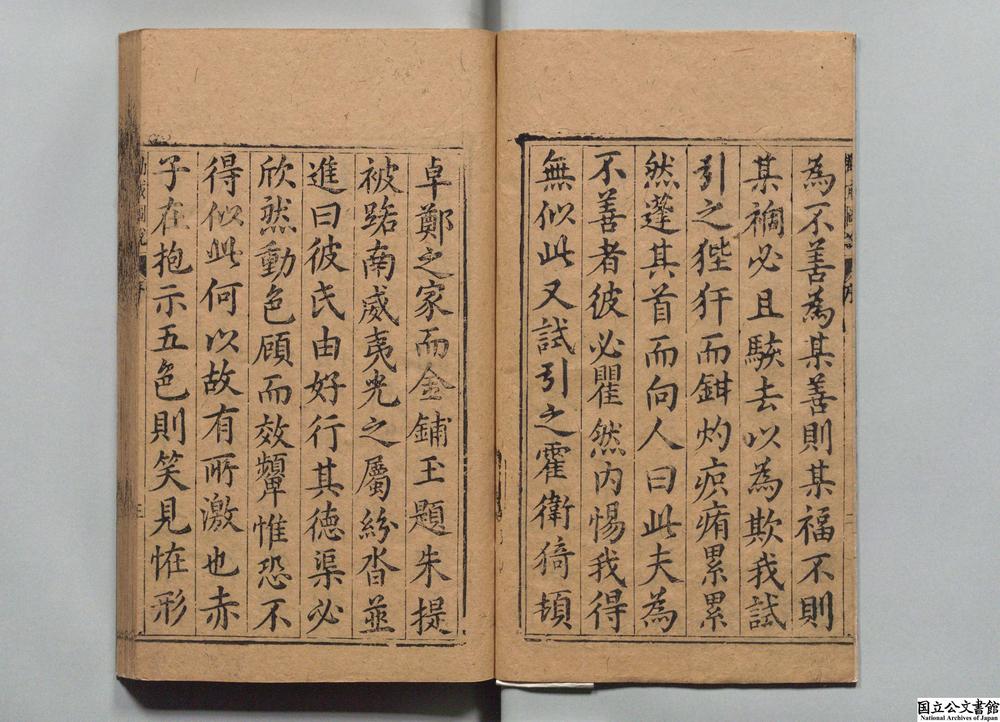 為不善為某善則某福不則
某禍必且駭去以為欺我試
引之狴犴而鉗灼疻痏累累
然蓬其首而向人曰此夫為
不善者彼必瞿然內惕我得
無似此又試引之霍衛猗頓
卓鄭之家而金鋪玉題朱提
被踞南威夷光之屬紛沓並
進曰彼氏由好行其德渠必
欣然動色顧而效顰惟恐不
得似此何以故有所激也赤
子在抱示五色則笑見恠形
国立公文書館
National Archives of Japan